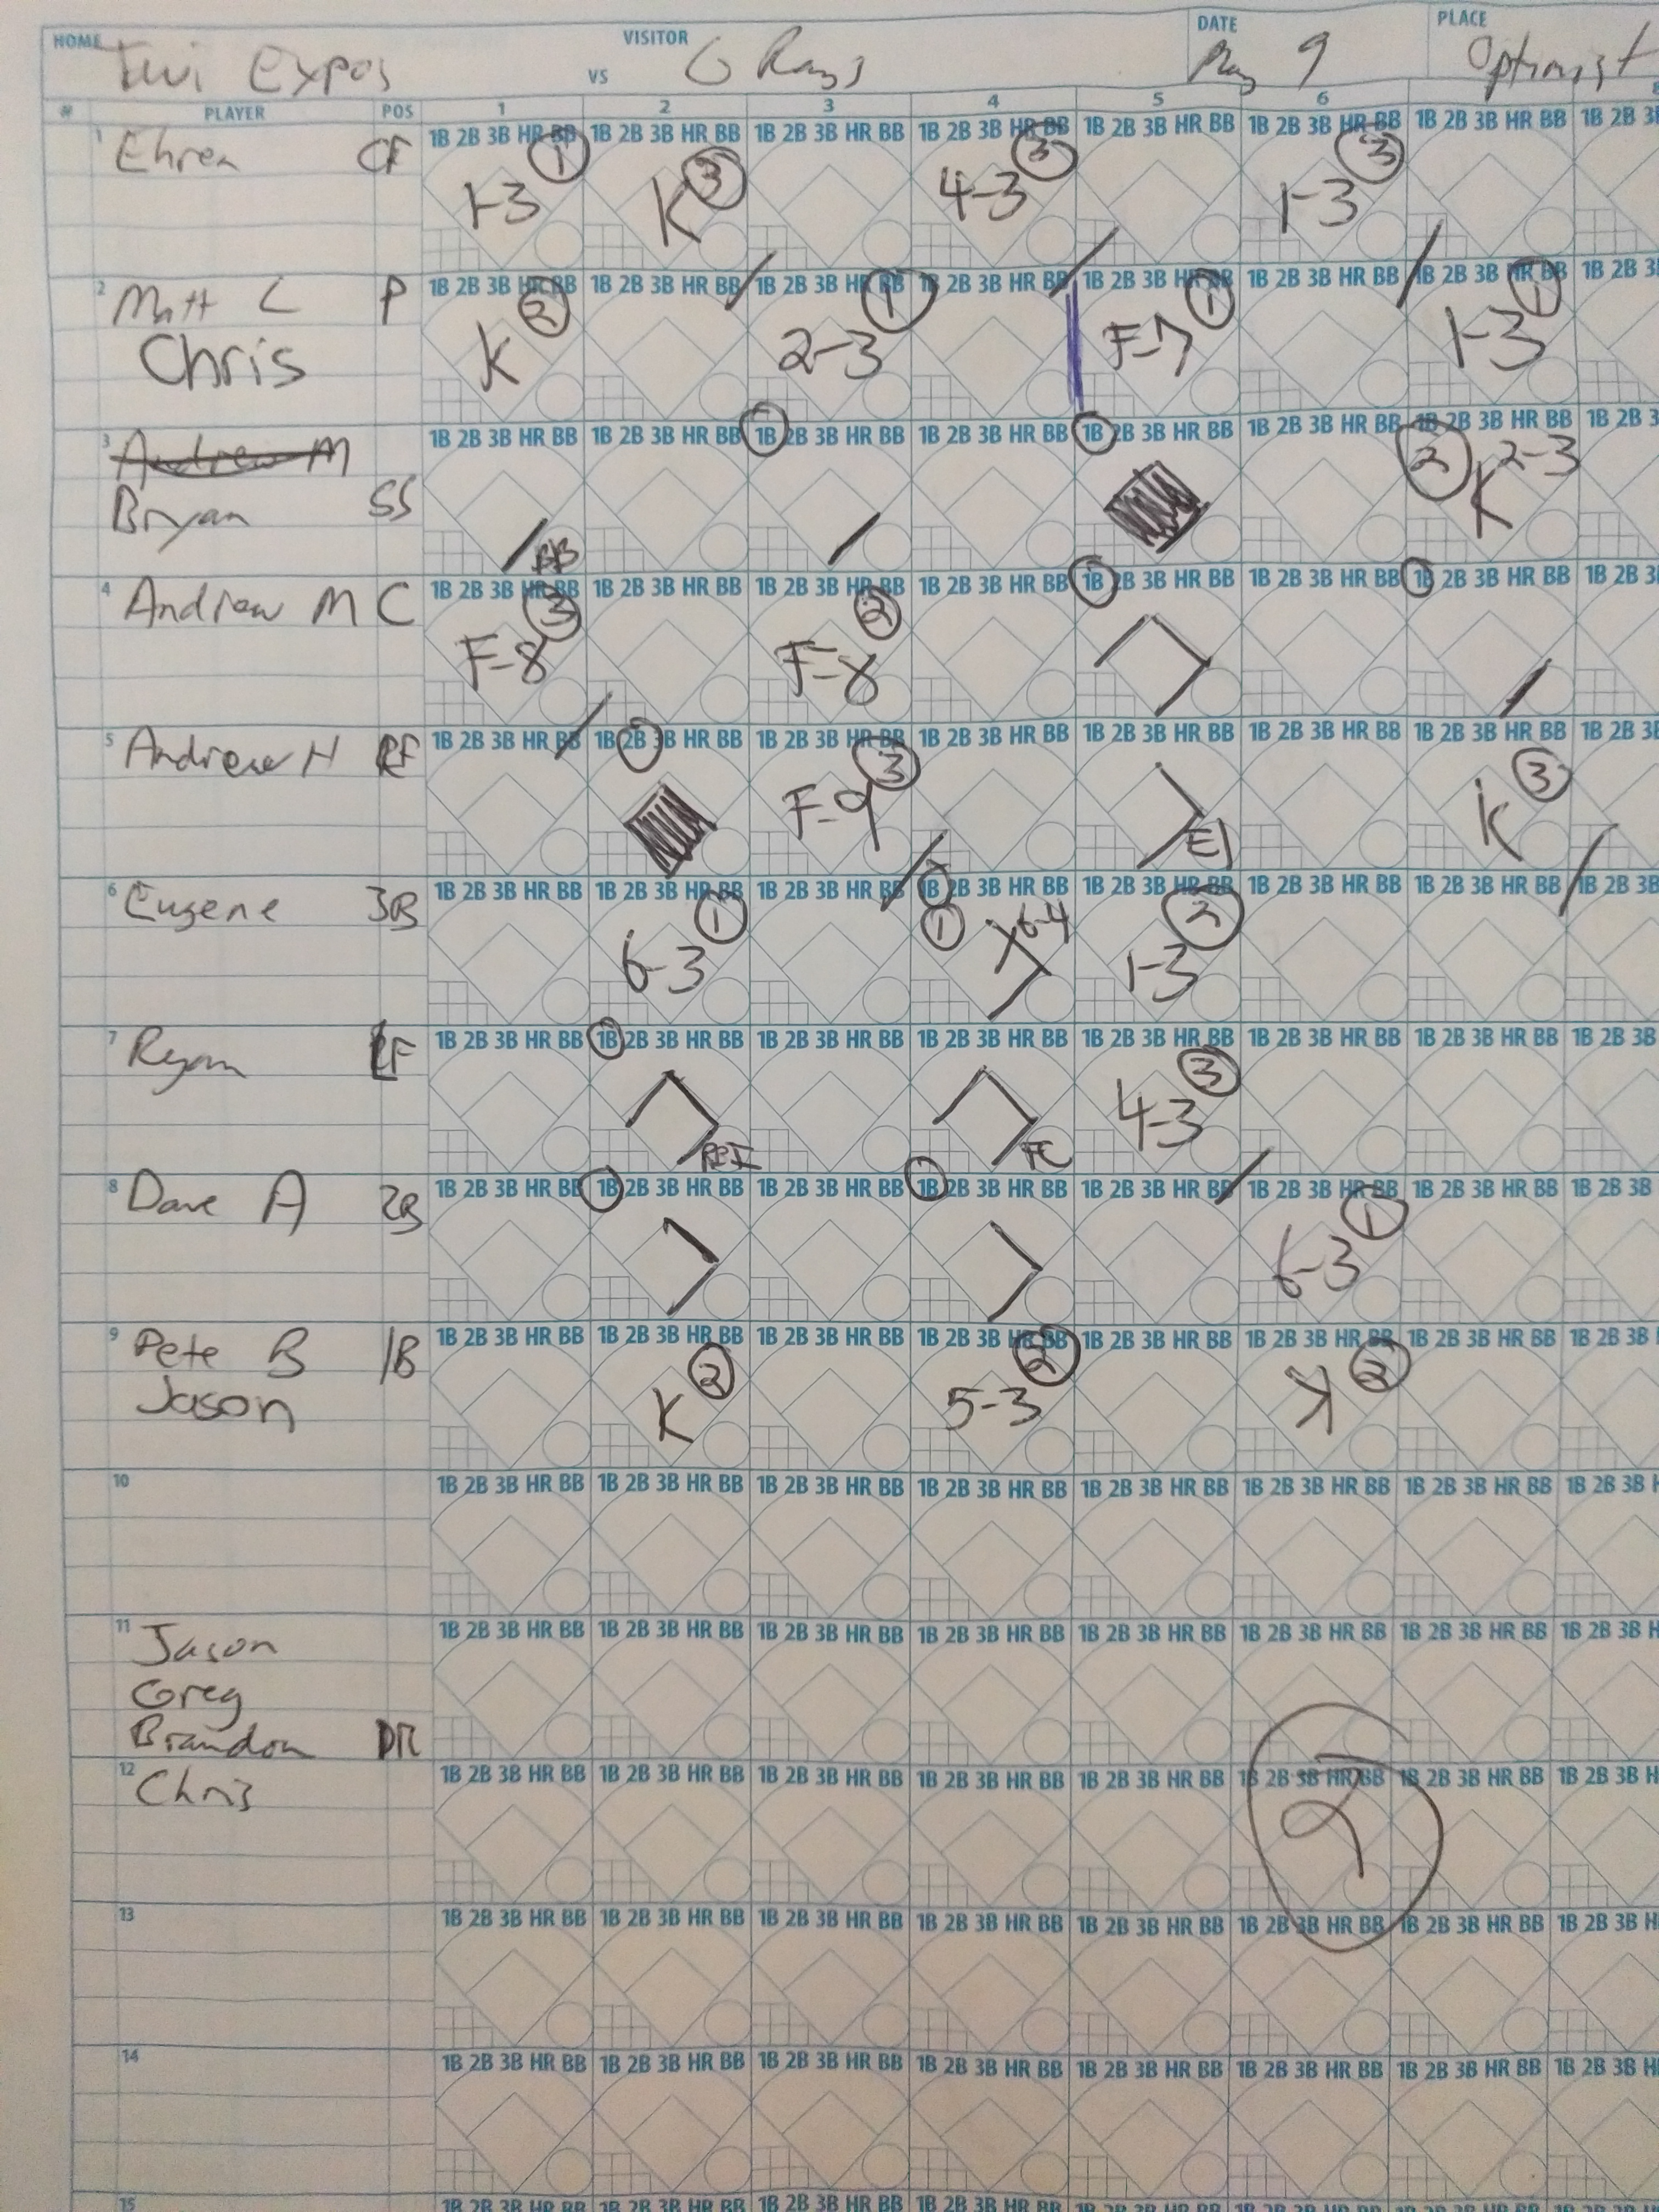 HOME Twi Expos VS VISITOR G Rays DATE May 9 PLACE Optimist
# PLAYER POS 1 2 3 4 5 6
1 Ehren CF 1B 2B 3B HR BB 1B 2B 3B HR BB 1B 2B 3B HR BB 1B 2B 3B HR BB 1B 2B 3B HR BB 1B 2B 3B HR BB 1B 2B 3B HR BB 1B 2B
1-3 1 K 3 4-3 3 1-3 3
2 Matt L P 1B 2B 3B HR BB 1B 2B 3B HR BB 1B 2B 3B HR BB 1B 2B 3B HR BB 1B 2B 3B HR BB 1B 2B 3B HR BB 1B 2B 3B HR BB 1B 2B
Chris K 2 2-3 1 F-7 1 1-3 1
3 Andrew M 1B 2B 3B HR BB 1B 2B 3B HR BB 1B 2B 3B HR BB 1B 2B 3B HR BB 1B 2B 3B HR BB 1B 2B 3B HR BB 1B 2B 3B HR BB 1B 2B
Bryan SS BB 2 K 2-3
4 Andrew M C 1B 2B 3B HR BB 1B 2B 3B HR BB 1B 2B 3B HR BB 1B 2B 3B HR BB 1B 2B 3B HR BB 1B 2B 3B HR BB 1B 2B 3B HR BB 1B 2B
F-8 3 F-8 2
5 Andrew H RF 1B 2B 3B HR BB 1B 2B 3B HR BB 1B 2B 3B HR BB 1B 2B 3B HR BB 1B 2B 3B HR BB 1B 2B 3B HR BB 1B 2B 3B HR BB 1B 2B
F-9 3 E1 K 3
6 Eugene 3B 1B 2B 3B HR BB 1B 2B 3B HR BB 1B 2B 3B HR BB 1B 2B 3B HR BB 1B 2B 3B HR BB 1B 2B 3B HR BB 1B 2B 3B HR BB 1B 2B 3B
6-3 1 1 6-4 1-3 2
7 Ryan LF 1B 2B 3B HR BB 1B 2B 3B HR BB 1B 2B 3B HR BB 1B 2B 3B HR BB 1B 2B 3B HR BB 1B 2B 3B HR BB 1B 2B 3B HR BB 1B 2B 3B
RBI FC 4-3 3
8 Dave A 2B 1B 2B 3B HR BB 1B 2B 3B HR BB 1B 2B 3B HR BB 1B 2B 3B HR BB 1B 2B 3B HR BB 1B 2B 3B HR BB 1B 2B 3B HR BB 1B 2B 3B
6-3 1
9 Pete B 1B 1B 2B 3B HR BB 1B 2B 3B HR BB 1B 2B 3B HR BB 1B 2B 3B HR BB 1B 2B 3B HR BB 1B 2B 3B HR BB 1B 2B 3B HR BB 1B 2B 3B
Jason K 2 5-3 2 K 2
10 1B 2B 3B HR BB 1B 2B 3B HR BB 1B 2B 3B HR BB 1B 2B 3B HR BB 1B 2B 3B HR BB 1B 2B 3B HR BB 1B 2B 3B HR BB 1B 2B 3B
11 Jason 1B 2B 3B HR BB 1B 2B 3B HR BB 1B 2B 3B HR BB 1B 2B 3B HR BB 1B 2B 3B HR BB 1B 2B 3B HR BB 1B 2B 3B HR BB 1B 2B 3B
Greg
Brandon
12 Chris 1B 2B 3B HR BB 1B 2B 3B HR BB 1B 2B 3B HR BB 1B 2B 3B HR BB 1B 2B 3B HR BB 1B 2B 3B HR BB 1B 2B 3B HR BB 1B 2B 3B
13 1B 2B 3B HR BB 1B 2B 3B HR BB 1B 2B 3B HR BB 1B 2B 3B HR BB 1B 2B 3B HR BB 1B 2B 3B HR BB 1B 2B 3B HR BB 1B 2B 3B
14 1B 2B 3B HR BB 1B 2B 3B HR BB 1B 2B 3B HR BB 1B 2B 3B HR BB 1B 2B 3B HR BB 1B 2B 3B HR BB 1B 2B 3B HR BB 1B 2B 3B
15 1B 2B 3B HR BB 1B 2B 3B HR BB 1B 2B 3B HR BB 1B 2B 3B HR BB 1B 2B 3B HR BB 1B 2B 3B HR BB 1B 2B 3B HR BB 1B 2B 3B